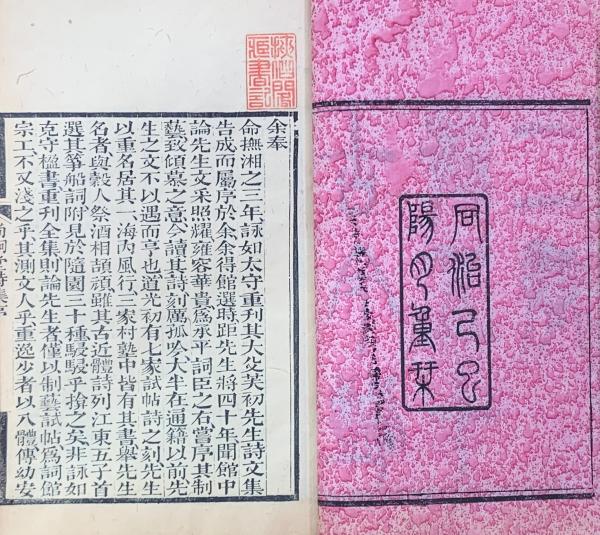 同治己巳
陽月重栞
余奉
命撫湘之三年詠如太守重刊其大父芙初先生詩文集
告成而屬序於余余得館選時距先生將四十年聞館中
論先生文采照耀雍容華貴爲承平詞臣之右嘗序其制
藝致傾慕之意今讀其詩刻厲孤吟大半在通籍以前先
生之文不以遇而亨也道光初有七家試帖詩之刻先生
以重名居其一海內風行三家村塾中皆有其書舉先生
名者與穀人祭酒相頡頏雖其古近體詩列江東五子首
選其箏船詞附見於隨園三十種駸駸乎揜之矣非詠如
克守楹書重刊全集則論先生者僅以制藝試帖爲詞館
宗工不又淺之乎其測文人乎重逸少者以八體傳幼安